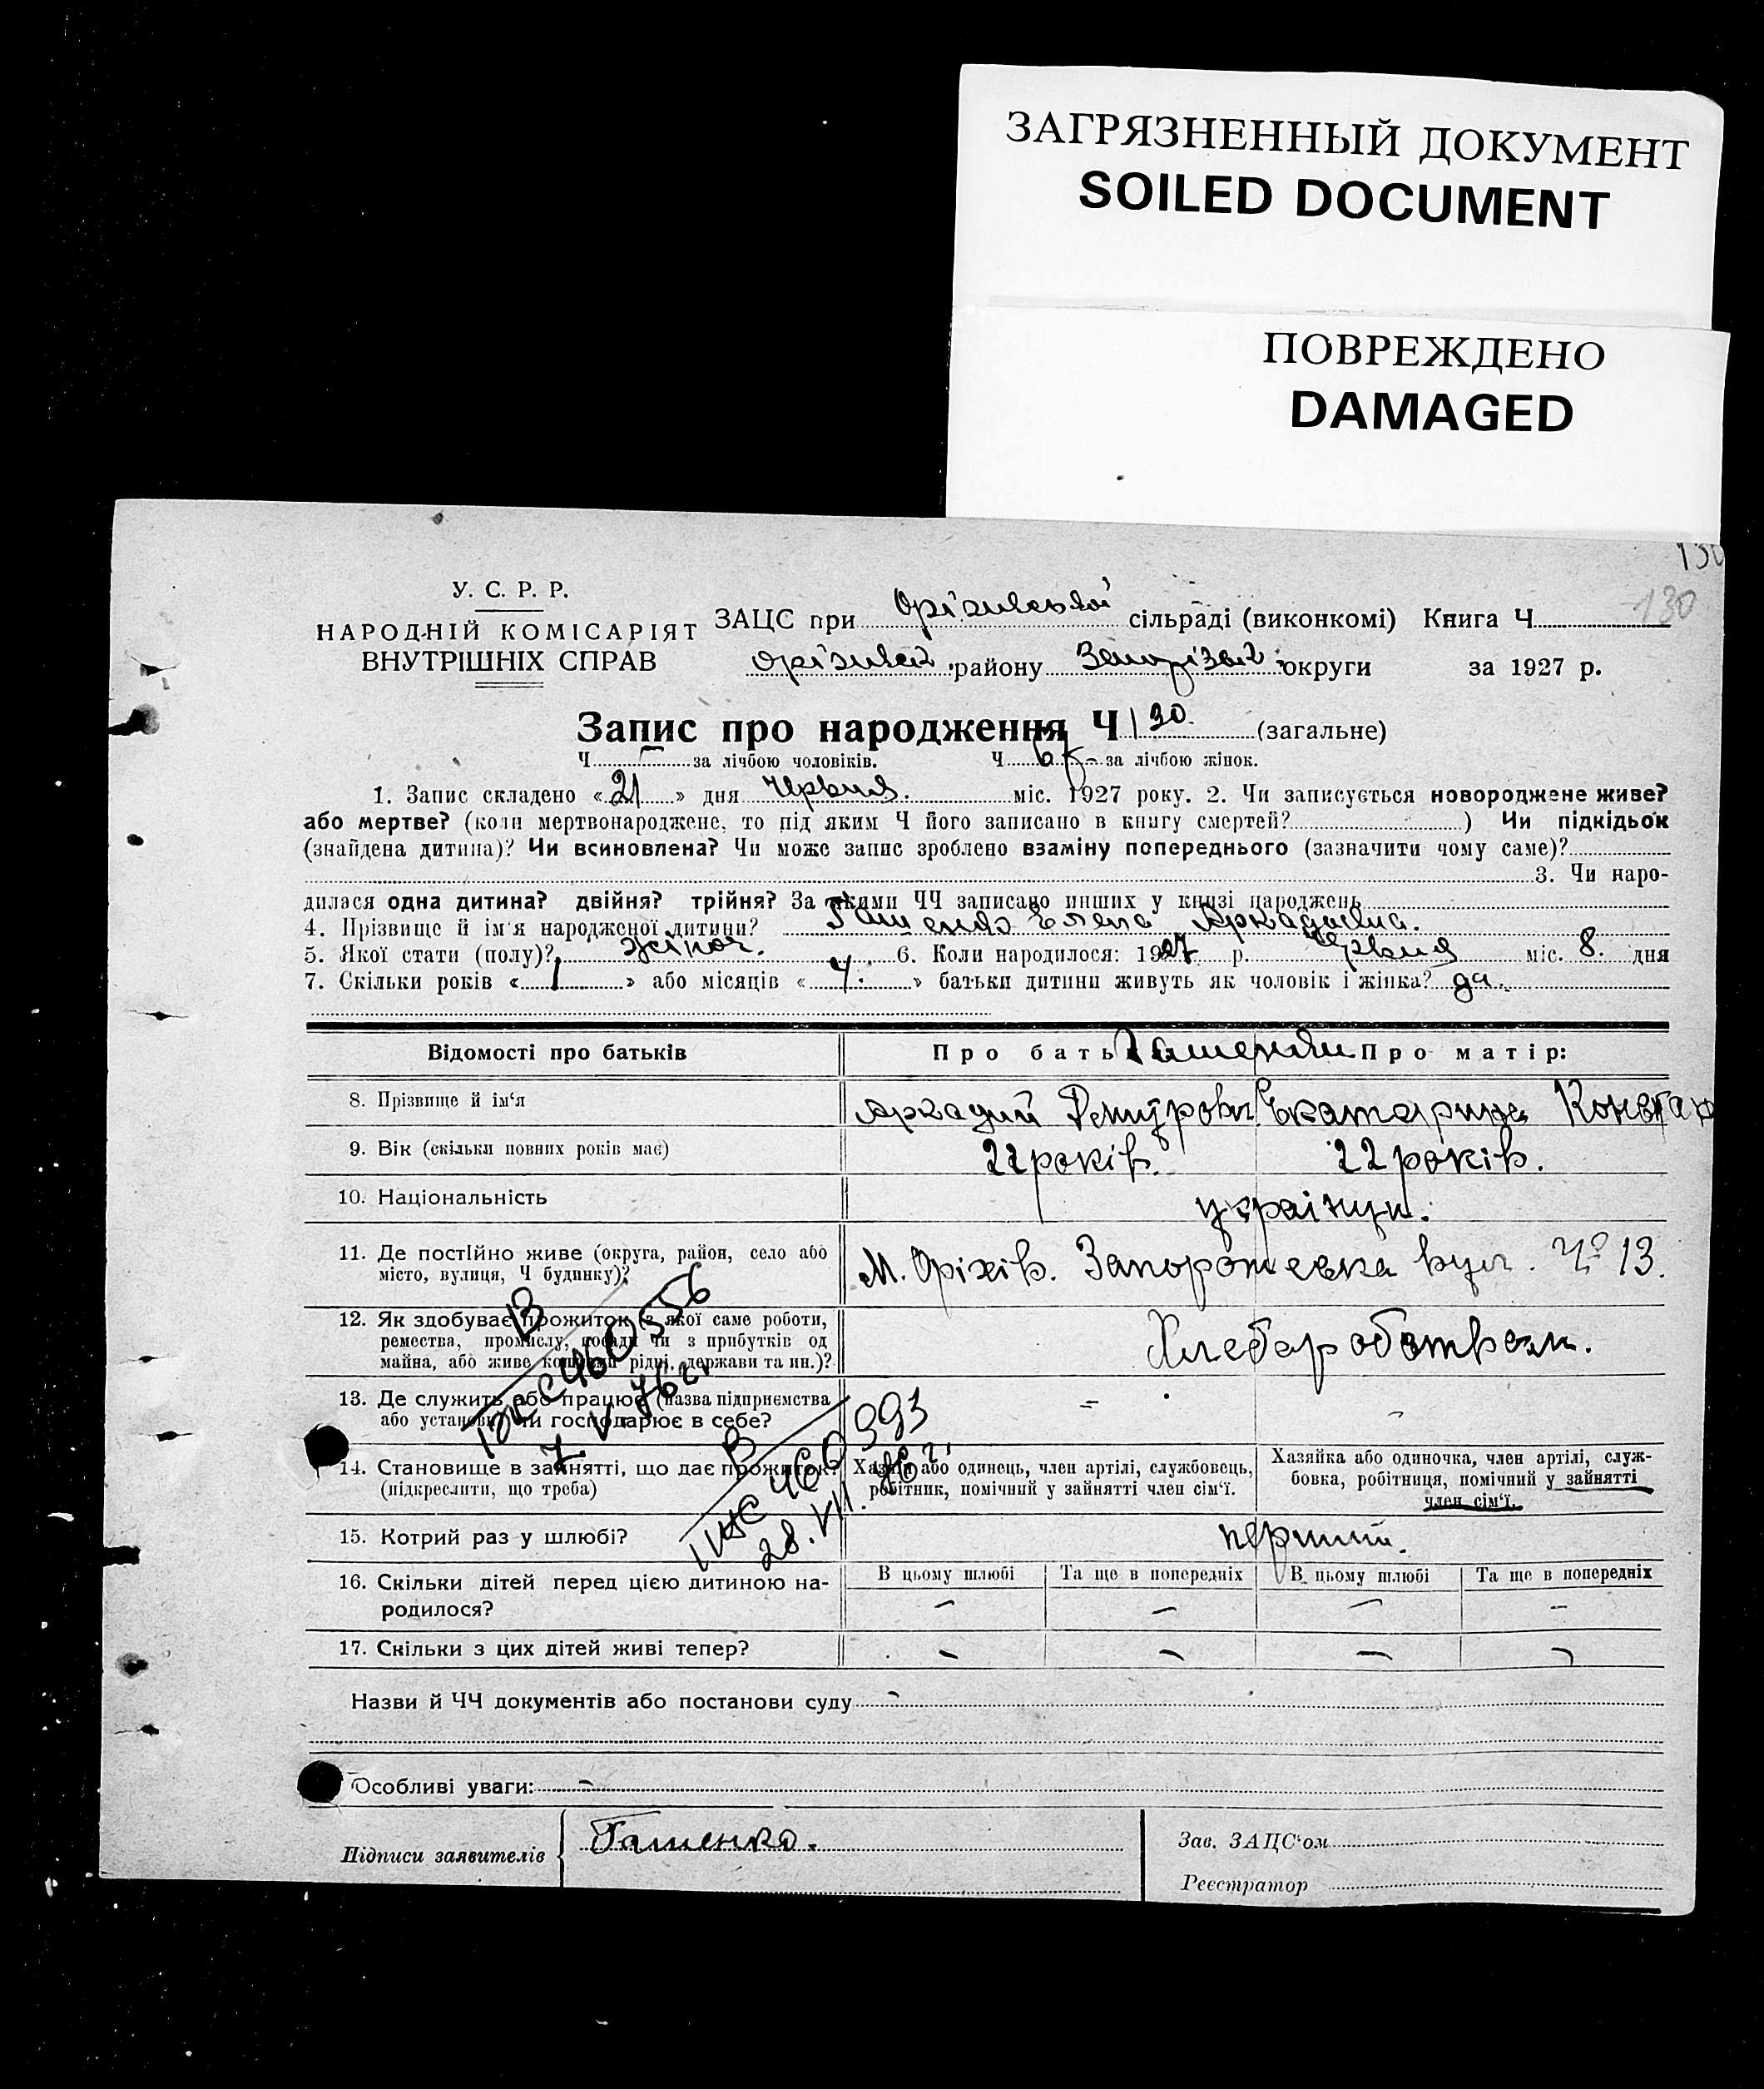 ЗАГРЯЗНЕННЫЙ ДОКУМЕНТ
SOILED DOCUMENT
ПОВРЕЖДЕНО
DAMAGED
130
У. С. Р. Р.
НАРОДНІЙ КОМІСАРІЯТ
ВНУТРІШНІХ СПРАВ
ЗАЦС при Оріхивській сільраді (виконкомі) Книга Ч 130
району округи за 1927 р.
Запис про народження Ч 130. (загальне)
Ч за лічбою чоловіків. Ч за лічбою жінок.
1. Запис складено «21» дня Червня. міс. 1927 року. 2. Чи записується новороджене живе?
або мертве? (коли мертвонароджене, то під яким Ч його записано в книгу смертей? ) Чи підкідьок
(знайдена дитина)? Чи всиновлена? Чи може запис зроблено взаміну попереднього (зазначити чому саме)?
3. Чи наро-
дилася одна дитина? двійня? трійня? За якими ЧЧ записано инших у книзі народжень
4. Прізвище й ім'я народженої дитини? Гашенко Елена Аркадьевна.
5. Якої стати (полу)? жіноч. 6. Коли народилося: 1927 р. Червня міс. 8. дня
7. Скільки років «1» або місяців «4.» батьки дитини живуть як чоловік і жінка? да.
Відомості про батьків
Про бать Гашенки Про матір:
8. Прізвище й ім'я Аркадий Екатерина
9. Вік (скільки повних років має) 22 років. 22 років.
10. Національність українци.
11. Де постійно живе (округа, район, село або
місто, вулиця, Ч будинку)? М. Оріхів. вул. Ч° 13.
12. Як здобуває прожиток (з якої саме роботи,
ремества, промислу, посади чи з прибутків од
майна, або живе коштами рідні, держави та ин.)? Хлеборобством.
13. Де служить або працює (назва підприємства
або установи) чи господарює в себе? – –
В
460556
7.V.76 г.
В
460993
28.VII.76 г.
14. Становище в зайнятті, що дає прожиток?
(підкреслити, що треба)
Хазяїн або одинець, член артілі, службовець,
робітник, помічний у зайнятті член сім'ї.
Хазяйка або одиночка, член артілі, служ-
бовка, робітниця, помічний у зайнятті
член сім'ї.
15. Котрий раз у шлюбі? перший.
16. Скільки дітей перед цією дитиною на-
родилося?
В цьому шлюбі Та ще в попередніх В цьому шлюбі Та ще в попередніх
– – – –
17. Скільки з цих дітей живі тепер? – – – –
Назви й ЧЧ документів або постанови суду –
Особливі уваги: –
Підписи заявителів Гашенко.
Зав. ЗАЦС'ом
Реєстратор